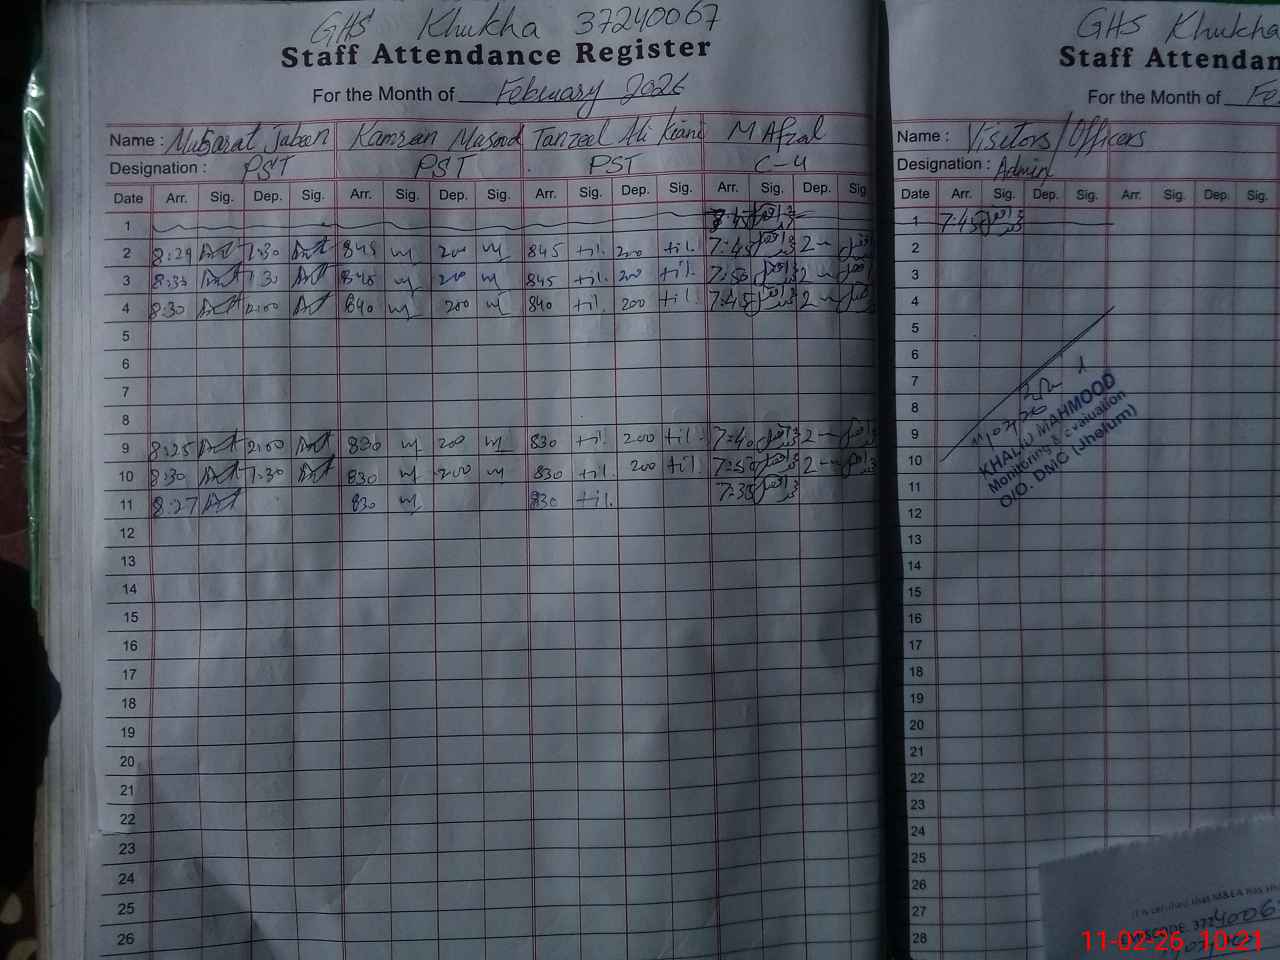 GHS Khukha 37240067
Staff Attendance Register
For the Month of February 2026
Name : Mubarat Jabeen Kamran Masood Tanzeel Ali Kiani M Afzal
Designation : PST PST PST C-4
Date Arr. Sig. Dep. Sig. Arr. Sig. Dep. Sig. Arr. Sig. Dep. Sig. Arr. Sig. Dep. Sig.
1
2 8:29 1:30 845 200 845 til. 200 til. 7:45 2
3 8:35 1:30 845 200 845 til. 200 til. 7:50 2
4 8:30 2:00 840 200 840 til. 200 til. 7:45 2
5
6
7
8
9 8:25 2:00 830 200 830 til. 200 til. 7:40 2
10 8:30 1:30 830 200 830 til. 200 til. 7:50 2
11 8:27 830 830 til. 7:35
12
13
14
15
16
17
18
19
20
21
22
23
24
25
26
GHS Khukha
Staff Attendan
For the Month of Fe
Name : Visitors/Officers
Designation : Admin
Date Arr. Sig. Dep. Sig. Arr. Sig. Dep. Sig.
1 7:45
2
3
4
5
6
7
8
9
10
11
12
13
14
15
16
17
18
19
20
21
22
23
24
25
26
27
28
KHALID MAHMOOD
Monitoring & Evaluation
O/O. DMC (Jhelum)
It is certified that M&EA has
3724006
11-02-26 10:21